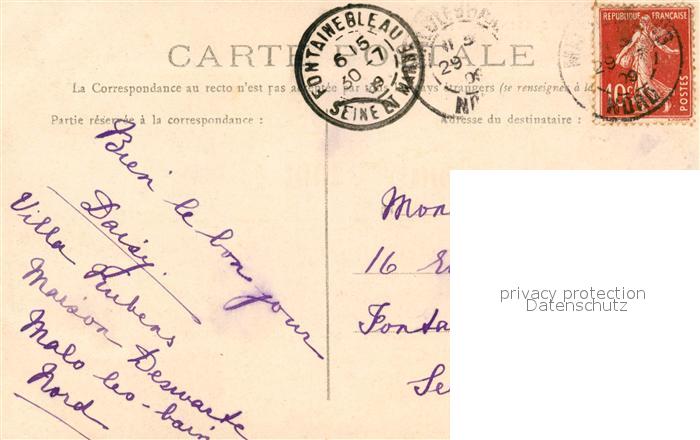 CARTE POSTALE
La Correspondance au recto n'est pas acceptée par tous pays étrangers (se renseignez à la
Partie réservée à la correspondance :
Adresse du destinataire :
FONTAINEBLEAU
6-15
30-7
SEINE ET MARNE
29
NORD
REPUBLIQUE FRANÇAISE
10c
POSTES
29
09
NORD
Bien le bon jour
Daisy
Villa Rubens
Maison Deswarte
Malo les-bains
Nord
Mon
16
Fonta
Se
privacy protection
Datenschutz